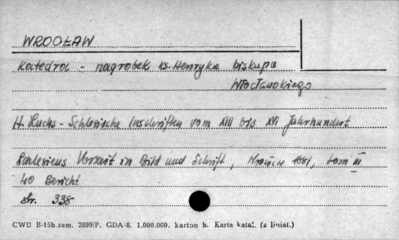 WROCŁAW
Katedra - nagrobek ks. Henryka biskupa
Włocławskiego
H. Luchs - Schlesische Inschriften vom XIII bis XVI Jahrhundert
Schlesiens Vorzeit in Bild und Schrift, tom III
40 Bericht
str. 338
CWD B-15b.zam. 2899/P. GDA-8. 1.000.000. karton b. Karta katal. (z liniat.)